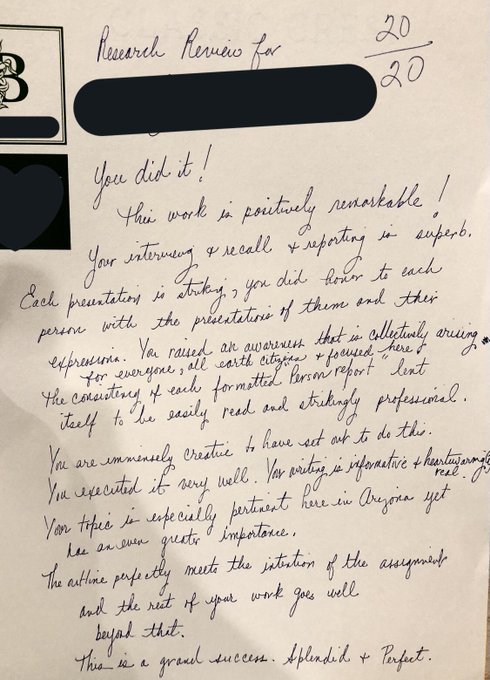 Research Review for
20
20
B
You did it!
This work is positively remarkable!
Your interviewing & recall & reporting is superb.
Each presentation is striking, you did honor to each
person with the presentations of them and their
expressions. You raised an awareness that is collectively arising
for everyone, all earth citizens & focused "here"
The consistency of each formatted "Person report" lent
itself to be easily read and strikingly professional.
You are immensely creative to have set out to do this.
You executed it very well. Your writing is informative & heartwarmingly
real.
Your topic is especially pertinent here in Arizona yet
has an even greater importance.
The outline perfectly meets the intention of the assignment
and the rest of your work goes well
beyond that.
This is a grand success. Splendid & Perfect.